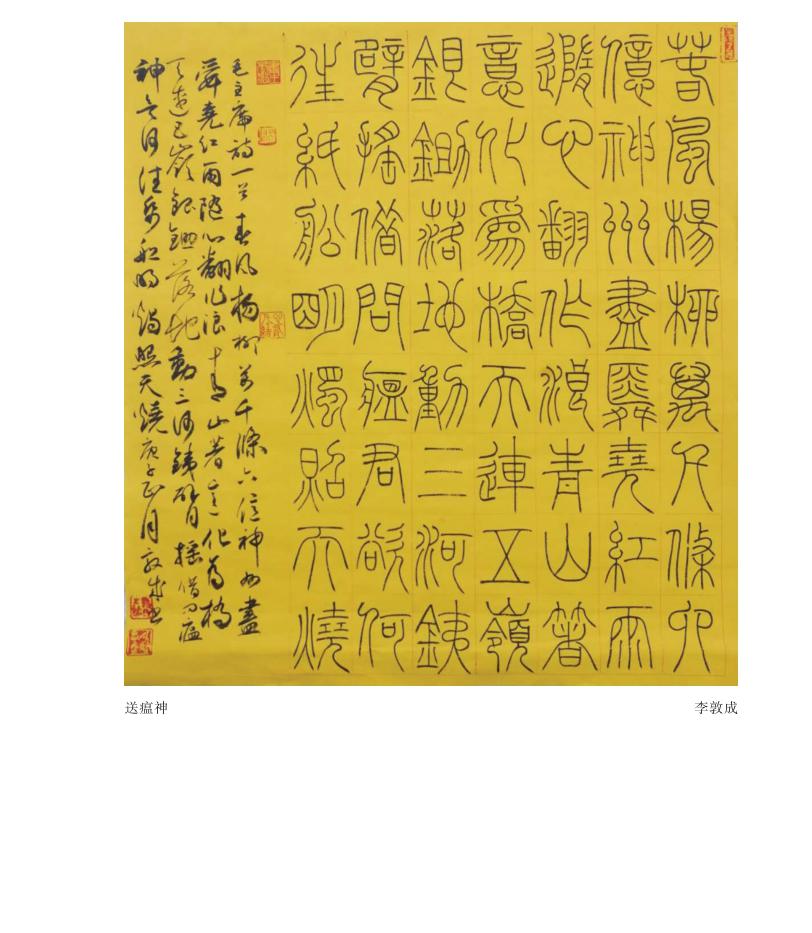 春風楊柳萬千條六
億神州盡舜堯紅雨
隨心翻作浪青山著
意化為橋天連五嶺
銀鋤落地動三河鐵
臂搖借問瘟君欲何
往紙船明燭照天燒
毛主席詩一首春风楊柳萬千條六億神州盡
舜堯紅雨隨心翻作浪青山著意化為橋
天連五嶺銀鋤落地動三河鐵臂搖借問瘟
神欲何往紙船明燭照天燒庚子正月敦成書
送瘟神
李敦成